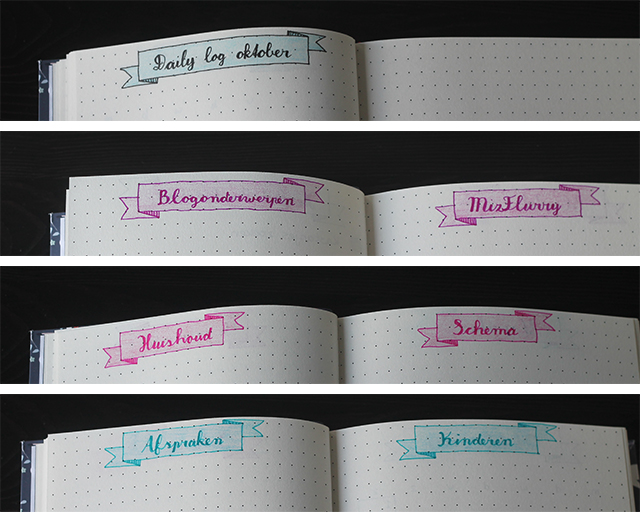 Daily log oktober
Blogonderwerpen
MizFlurry
Huishoud
Schema
Afspraken
Kinderen